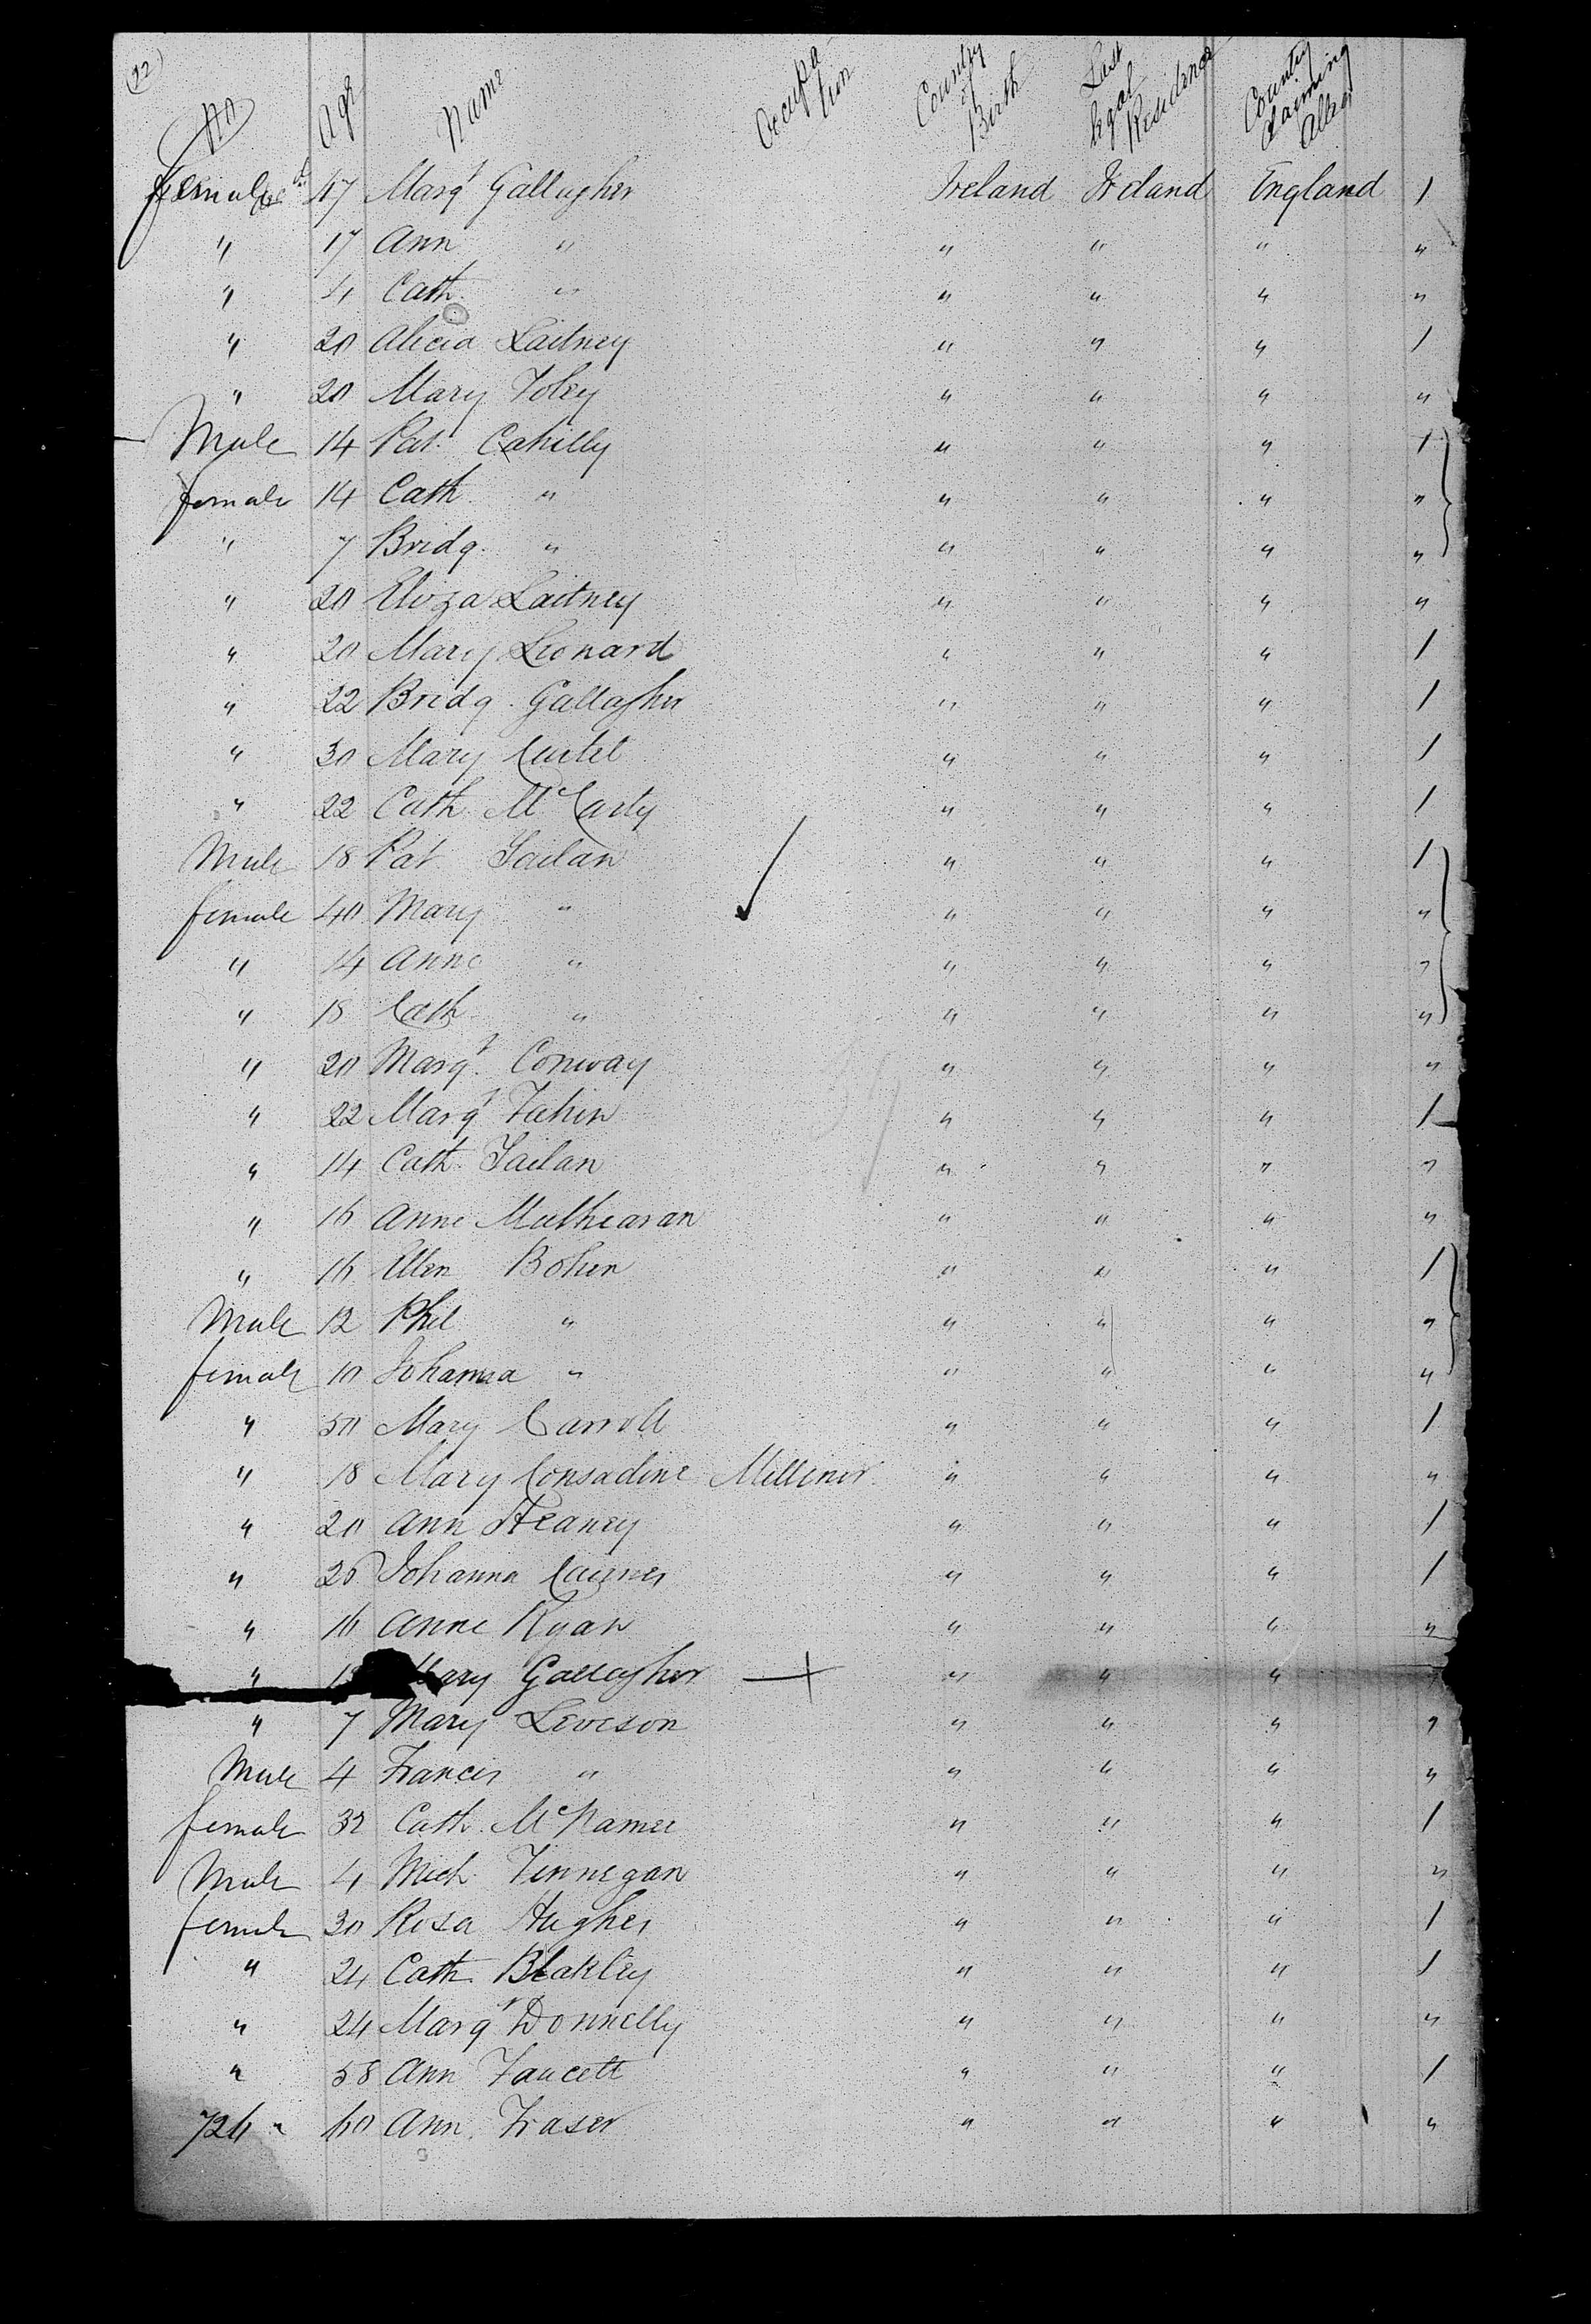 (22)
No Age Name Occupation Country of Birth Last legal Residence Country Claiming Alleg
female 47 Margt Gallagher Ireland Ireland England 1
" 17 Ann " " " " "
" 4 Cath. " " " " "
" 20 Alicia Laitney " " " 1
" 20 Mary Foley " " " "
Male 14 Pat. Cahilly " " " 1
female 14 Cath. " " " " "
" 7 Bridg. " " " " "
" 20 Eliza Laitney " " " "
" 20 Mary Leonard " " " 1
" 22 Bridg. Gallagher " " " 1
" 30 Mary " " " 1
" 22 Cath. McCarty " " " 1
Male 18 Pat Failan " " " 1
female 40 Mary " " " " "
" 14 Anne " " " " "
" 18 Cath " " " " "
" 20 Margt. Conway " " " "
" 22 Margt Fahin " " " 1
" 14 Cath. Failan " " " "
" 16 Anne Mulhearan " " " "
" 16 Ellen Bohen " " " 1
Male 12 Phil " " " " "
female 10 Johanna " " " " "
" 50 Mary Carroll " " " 1
" 18 Mary Consadine Milliner " " " "
" 20 Ann Heaney " " " 1
" 26 Johanna " " " 1
" 16 Anne Ryan " " " "
" Mary Gallagher " " "
" 7 Mary Leveson " " " "
Male 4 Francis " " " " "
female 32 Cath. McNamee " " " 1
Male 4 Mich. Finnegan " " " "
female 30 Rosa Hughes " " " 1
" 24 Cath. Blakley " " " 1
" 24 Margt Donnelly " " " "
" 58 Ann Faucett " " " 1
726 " 60 Ann. Fraser " " " "